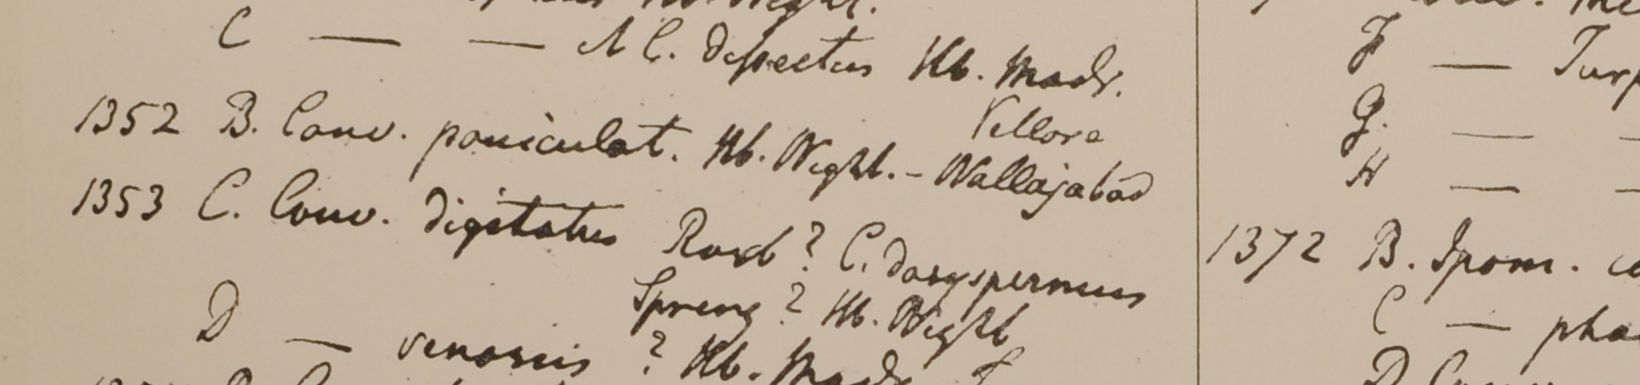 Hb. Wight.
C — — N C. dispectus Hb. Madr.
1352 B. Conv. paniculat. Hb. Wight. - Vellore
Wallajabad
1353 C. Conv. digitatus Roxb? C. dasyspermus
Spreng? Hb. Wight
D — venosus? Hb. Madr
F — Turp
G. —
H —
1372 B. Ipom.
C — pha